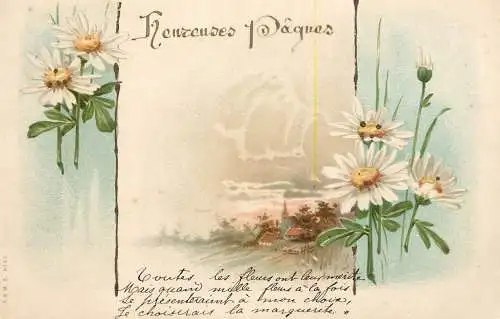 Heureuses Pâques
Toutes les fleurs ont leur mérite
Mais quand mille fleurs à la fois
Se présenteraient à mon choix,
Je choisirais la marguerite.